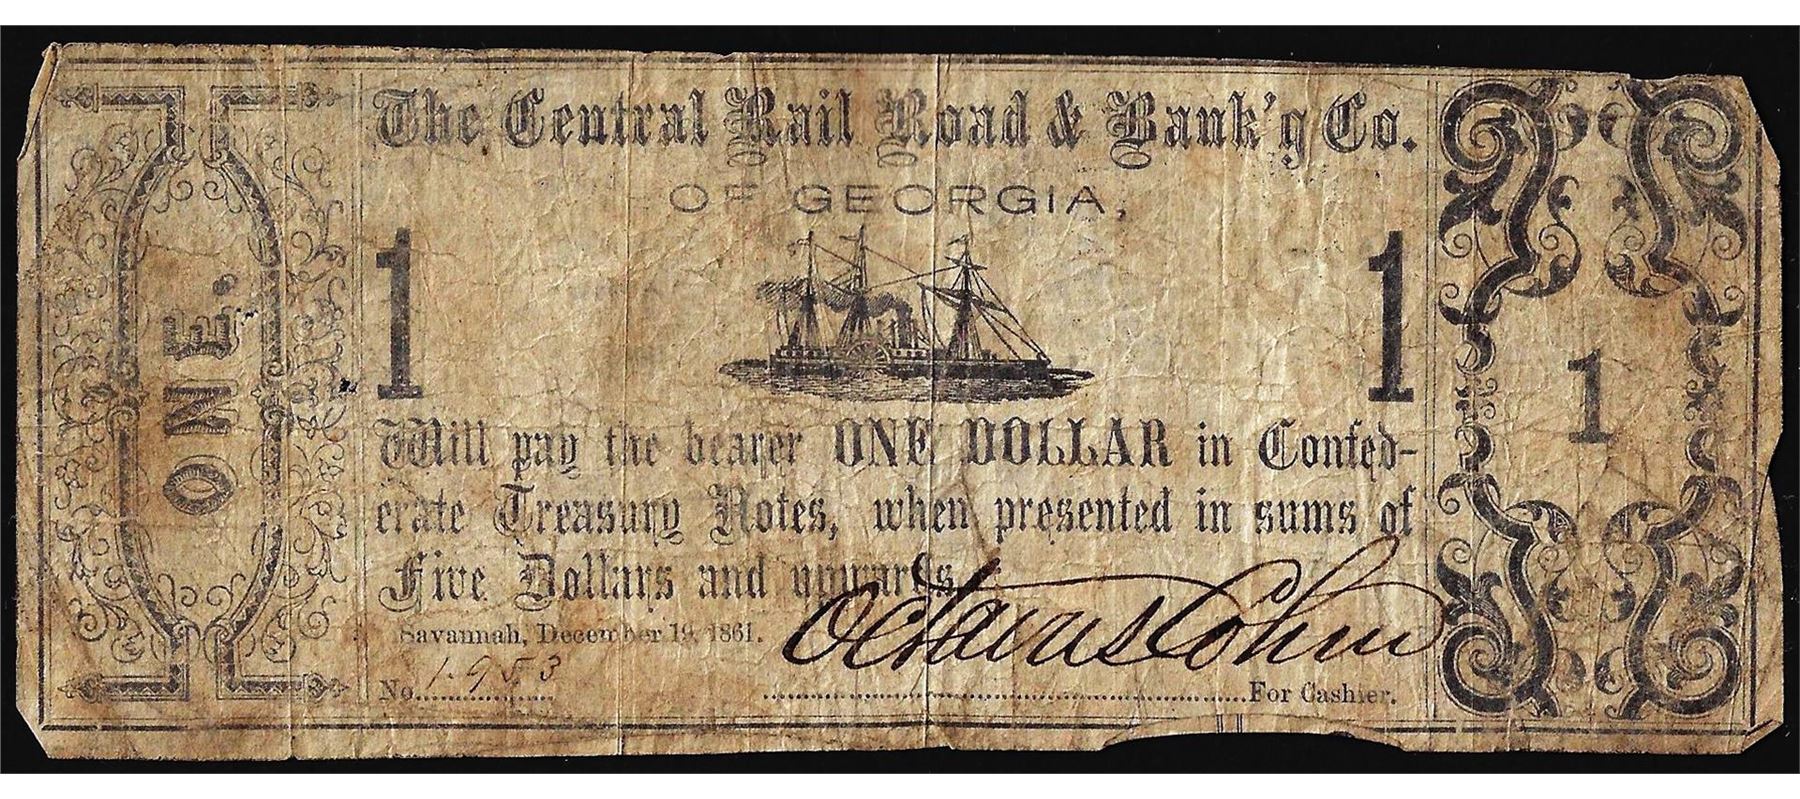 ONE.
The Central Rail Road & Bank'g Co.
OF GEORGIA,
1
1
1
Will pay the bearer ONE DOLLAR in Confed-
erate Treasury Notes, when presented in sums of
Five Dollars and upwards.
Savannah, December 19, 1861.
Octavus Cohen
No. 1953
For Cashier.